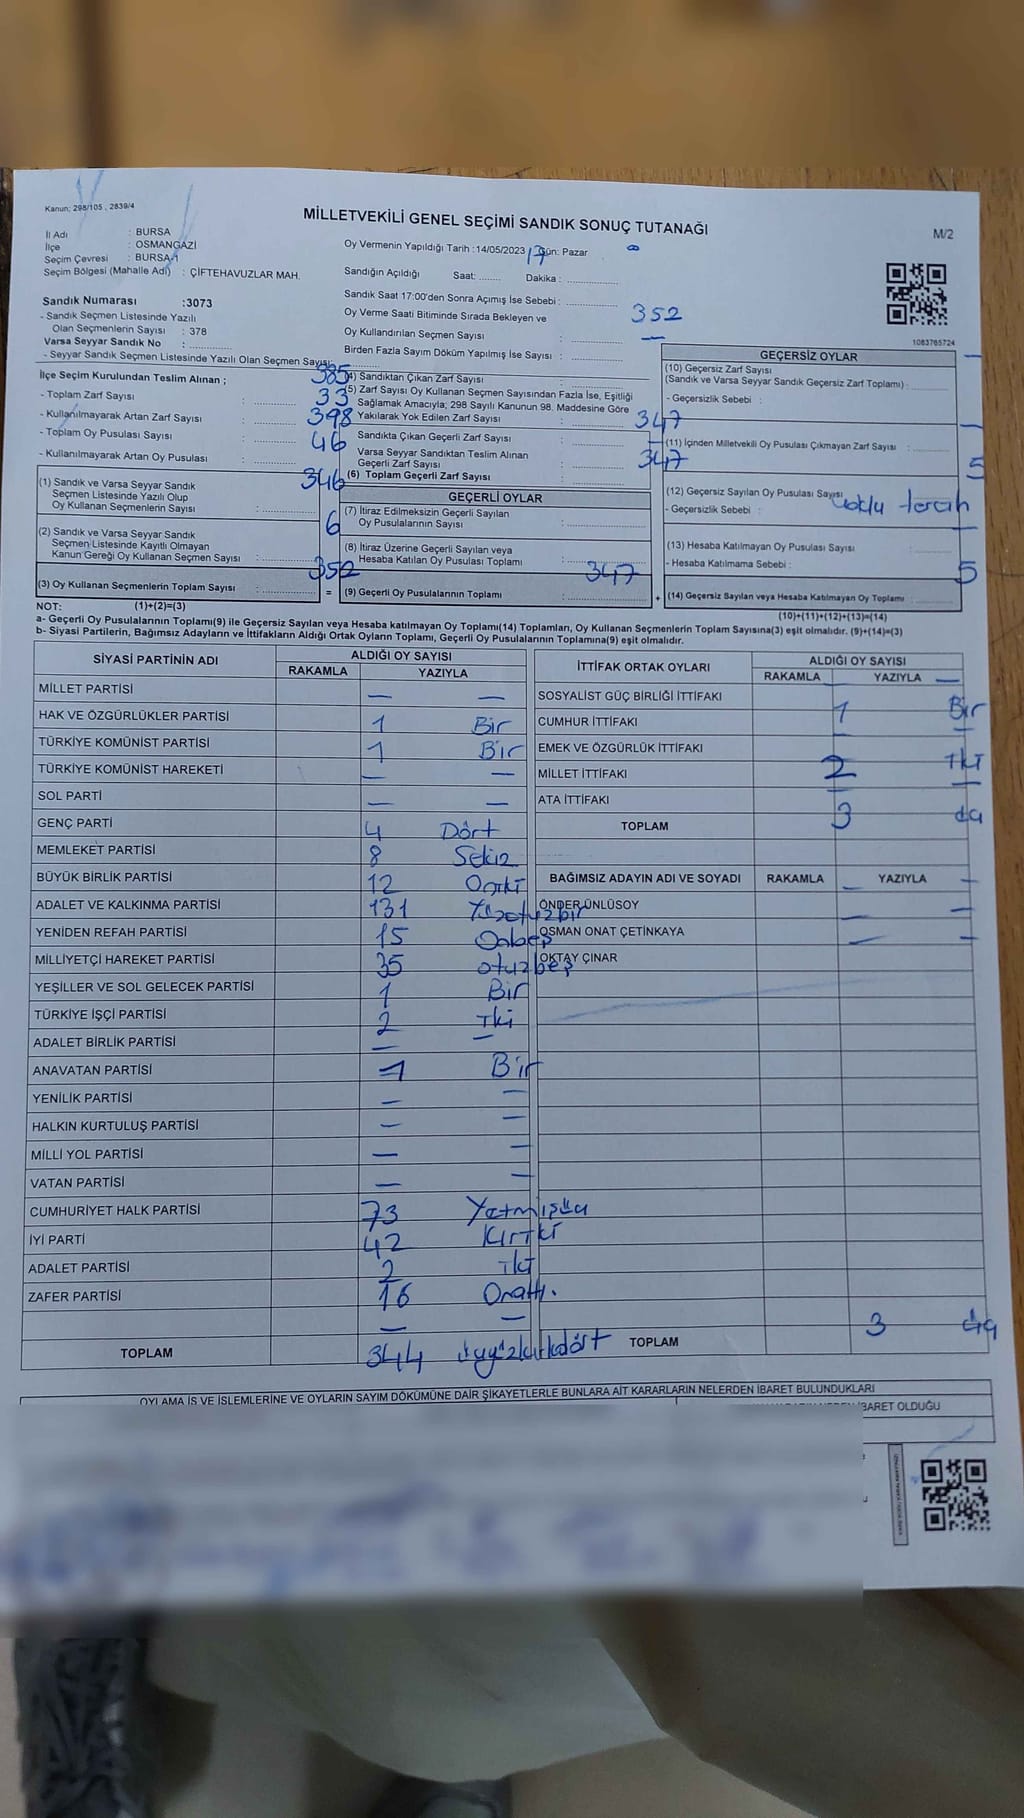 Kanun; 298/105 , 2839/4
MİLLETVEKİLİ GENEL SEÇİMİ SANDIK SONUÇ TUTANAĞI
M/2
İl Adı : BURSA
İlçe : OSMANGAZİ
Seçim Çevresi : BURSA-1
Seçim Bölgesi (Mahalle Adı) : ÇİFTEHAVUZLAR MAH.
Oy Vermenin Yapıldığı Tarih : 14/05/2023 Gün: Pazar
Sandığın Açıldığı Saat: ........ Dakika : ................
Sandık Saat 17:00'den Sonra Açımış İse Sebebi : ................
Oy Verme Saati Bitiminde Sırada Bekleyen ve
Oy Kullandırılan Seçmen Sayısı : 352
Birden Fazla Sayım Döküm Yapılmış İse Sayısı : —
1083765724
Sandık Numarası :3073
- Sandık Seçmen Listesinde Yazılı
Olan Seçmenlerin Sayısı : 378
Varsa Seyyar Sandık No : ................
- Seyyar Sandık Seçmen Listesinde Yazılı Olan Seçmen Sayısı:
İlçe Seçim Kurulundan Teslim Alınan ;
- Toplam Zarf Sayısı : 385
- Kullanılmayarak Artan Zarf Sayısı : 33
- Toplam Oy Pusulası Sayısı : 398
- Kullanılmayarak Artan Oy Pusulası : 46
(1) Sandık ve Varsa Seyyar Sandık
Seçmen Listesinde Yazılı Olup
Oy Kullanan Seçmenlerin Sayısı : 346
(2) Sandık ve Varsa Seyyar Sandık
Seçmen Listesinde Kayıtlı Olmayan
Kanun Gereği Oy Kullanan Seçmen Sayısı : 6
(3) Oy Kullanan Seçmenlerin Toplam Sayısı : 352
(4) Sandıktan Çıkan Zarf Sayısı :
(5) Zarf Sayısı Oy Kullanan Seçmen Sayısından Fazla İse, Eşitliği
Sağlamak Amacıyla; 298 Sayılı Kanunun 98. Maddesine Göre
Yakılarak Yok Edilen Zarf Sayısı :
Sandıkta Çıkan Geçerli Zarf Sayısı : 347
Varsa Seyyar Sandıktan Teslim Alınan
Geçerli Zarf Sayısı : —
(6) Toplam Geçerli Zarf Sayısı : 347
GEÇERLİ OYLAR
(7) İtiraz Edilmeksizin Geçerli Sayılan
Oy Pusulalarının Sayısı :
(8) İtiraz Üzerine Geçerli Sayılan veya
Hesaba Katılan Oy Pusulası Toplamı :
= (9) Geçerli Oy Pusulalarının Toplamı : 347
GEÇERSİZ OYLAR
(10) Geçersiz Zarf Sayısı
(Sandık ve Varsa Seyyar Sandık Geçersiz Zarf Toplamı) : —
- Geçersizlik Sebebi :
(11) İçinden Milletvekili Oy Pusulası Çıkmayan Zarf Sayısı : —
(12) Geçersiz Sayılan Oy Pusulası Sayısı 5
- Geçersizlik Sebebi : çoklu tercih
(13) Hesaba Katılmayan Oy Pusulası Sayısı : —
- Hesaba Katılmama Sebebi :
+ (14) Geçersiz Sayılan veya Hesaba Katılmayan Oy Toplamı : 5
NOT: (1)+(2)=(3)
(10)+(11)+(12)+(13)=(14)
a- Geçerli Oy Pusulalarının Toplamı(9) ile Geçersiz Sayılan veya Hesaba katılmayan Oy Toplamı(14) Toplamları, Oy Kullanan Seçmenlerin Toplam Sayısına(3) eşit olmalıdır. (9)+(14)=(3)
b- Siyasi Partilerin, Bağımsız Adayların ve İttifakların Aldığı Ortak Oyların Toplamı, Geçerli Oy Pusulalarının Toplamına(9) eşit olmalıdır.
SİYASİ PARTİNİN ADI ALDIĞI OY SAYISI
RAKAMLA YAZIYLA
MİLLET PARTİSİ — —
HAK VE ÖZGÜRLÜKLER PARTİSİ 1 Bir
TÜRKİYE KOMÜNİST PARTİSİ 1 Bir
TÜRKİYE KOMÜNİST HAREKETİ — —
SOL PARTİ — —
GENÇ PARTİ 4 Dört
MEMLEKET PARTİSİ 8 Sekiz
BÜYÜK BİRLİK PARTİSİ 12 Oniki
ADALET VE KALKINMA PARTİSİ 131 Yüzotuzbir
YENİDEN REFAH PARTİSİ 15 Onbeş
MİLLİYETÇİ HAREKET PARTİSİ 35 otuzbeş
YEŞİLLER VE SOL GELECEK PARTİSİ 1 Bir
TÜRKİYE İŞÇİ PARTİSİ 2 İki
ADALET BİRLİK PARTİSİ — —
ANAVATAN PARTİSİ 1 Bir
YENİLİK PARTİSİ — —
HALKIN KURTULUŞ PARTİSİ — —
MİLLİ YOL PARTİSİ — —
VATAN PARTİSİ — —
CUMHURİYET HALK PARTİSİ 73 Yetmişüç
İYİ PARTİ 42 Kırkiki
ADALET PARTİSİ 2 İki
ZAFER PARTİSİ 16 Onaltı.
— —
TOPLAM 344 üçyüzkırkdört
İTTİFAK ORTAK OYLARI ALDIĞI OY SAYISI
RAKAMLA YAZIYLA
SOSYALİST GÜÇ BİRLİĞİ İTTİFAKI — —
CUMHUR İTTİFAKI 1 Bir
EMEK VE ÖZGÜRLÜK İTTİFAKI — —
MİLLET İTTİFAKI 2 İki
ATA İTTİFAKI —
TOPLAM 3 üç
BAĞIMSIZ ADAYIN ADI VE SOYADI RAKAMLA YAZIYLA
ÖNDER ÜNLÜSOY — —
OSMAN ONAT ÇETİNKAYA — —
OKTAY ÇINAR — —
TOPLAM 3 üç
OYLAMA İŞ VE İŞLEMLERİNE VE OYLARIN SAYIM DÖKÜMÜNE DAİR ŞİKAYETLERLE BUNLARA AİT KARARLARIN NELERDEN İBARET BULUNDUKLARI
İBARET OLDUĞU